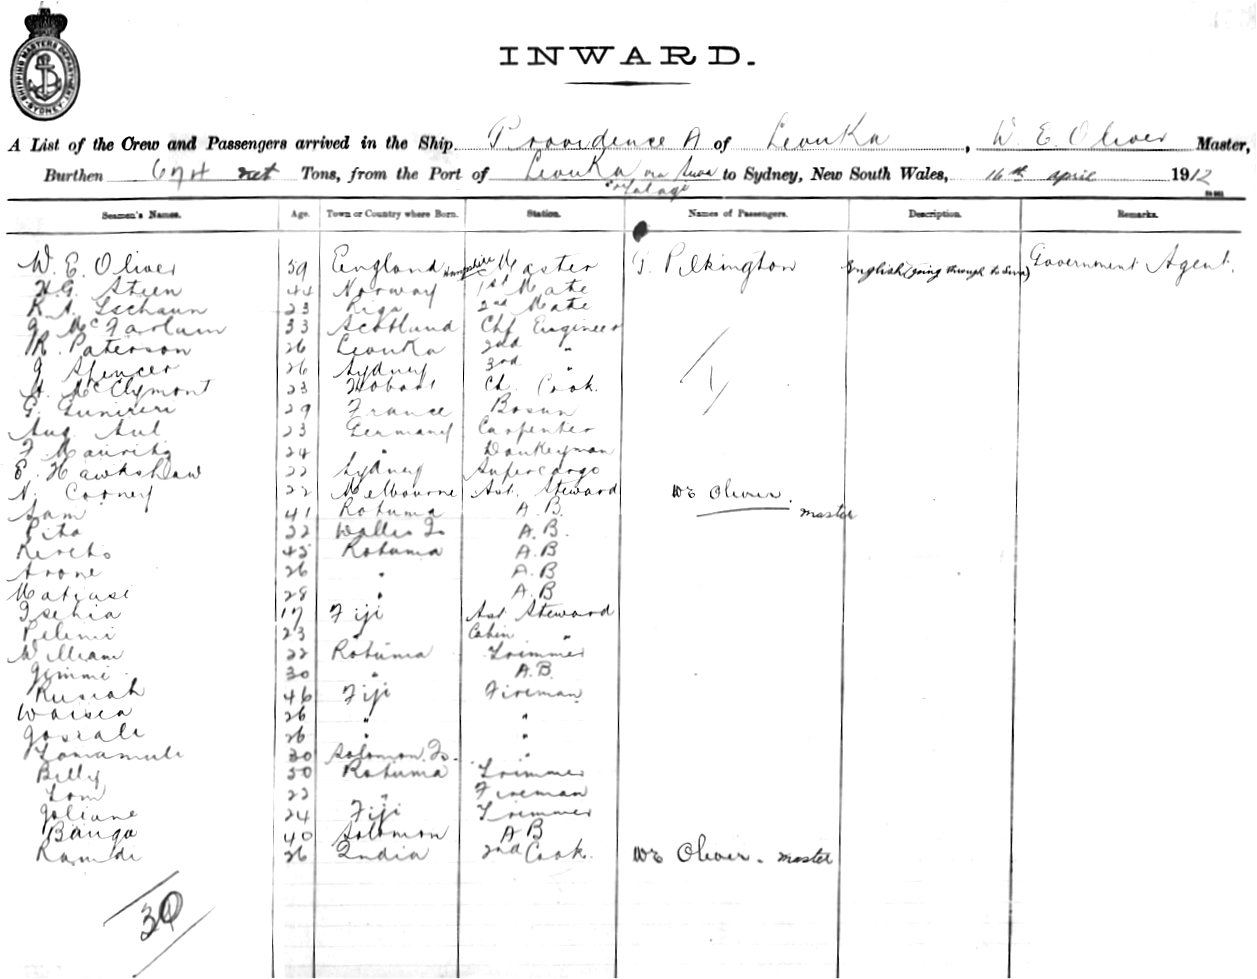 SHIPPING MASTERS DEPARTMENT SYDNEY
INWARD.
A List of the Crew and Passengers arrived in the Ship Providence A of Levuka, W. E. Oliver Master,
Burthen net Tons, from the Port of Levuka via Suva to Sydney, New South Wales, 16th April 1912
Seamen's Names. Age. Town or Country where Born. Station. Names of Passengers. Description. Remarks.
W. E. Oliver 59 England Hampshire Master J. Pilkington English (going through to Suva) Government Agent.
H. G. Steen 44 Norway 1st Mate
23 Riga 2nd Mate
J McFarlum 33 Scotland Chf Engineer
R. Paterson 26 Levuka 2nd "
J Spencer 26 Sydney 3rd "
A. McClymont 23 Hobart Ch. Cook
G. 29 France Bosun
Aug. Aul 23 Germany Carpenter
F Mauritz 24 " Donkeyman
E. Hawkshaw 22 Sydney Supercargo
N. Cooney 22 Melbourne Ast. Steward WE Oliver.
Sam 41 Rotuma A.B. master
Pita 22 Wallis Is A.B.
45 Rotuma A.B
Arone 26 " A.B
Matiase 28 " A.B
Isehia 17 Fiji Ast Steward
Pelemi 23 " Cabin "
William 22 Rotuma Trimmer
Jimmi 30 " A.B.
Rusiah 46 Fiji Fireman
Waisea 26 " "
Josiale 26 " "
30 Solomon Is. "
Billy 50 Rotuma Trimmer
Tom 22 " Fireman
Joliane 24 Fiji Trimmer
Banga 40 Solomon AB
Ramdi 26 India 2nd Cook. WE Oliver. master
30